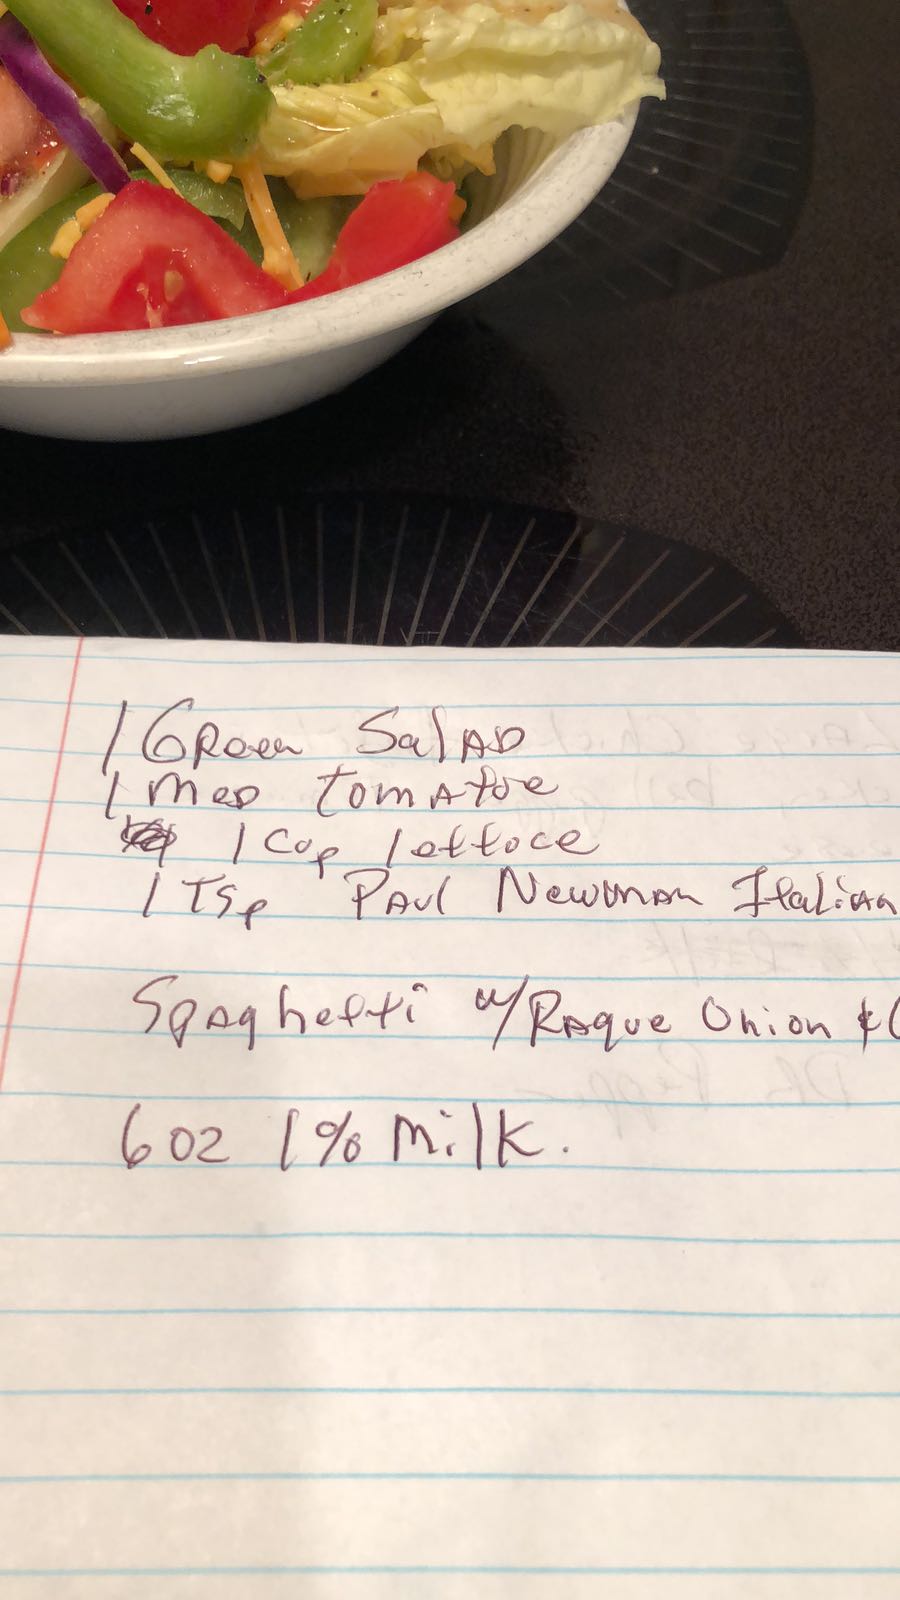 1 Green Salad
1 med tomatoe
1 Cup lettuce
1 Tsp Paul Newman Italian
Spaghetti w/Raque Onion &
6 oz 1% milk.